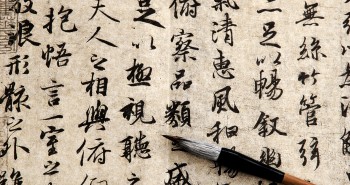 無絲竹管弦
足以暢敘幽
氣清惠風和暢
俯察品類盛
足以極視聽之
夫人之相與俯
抱悟言一室之
放浪形骸之外